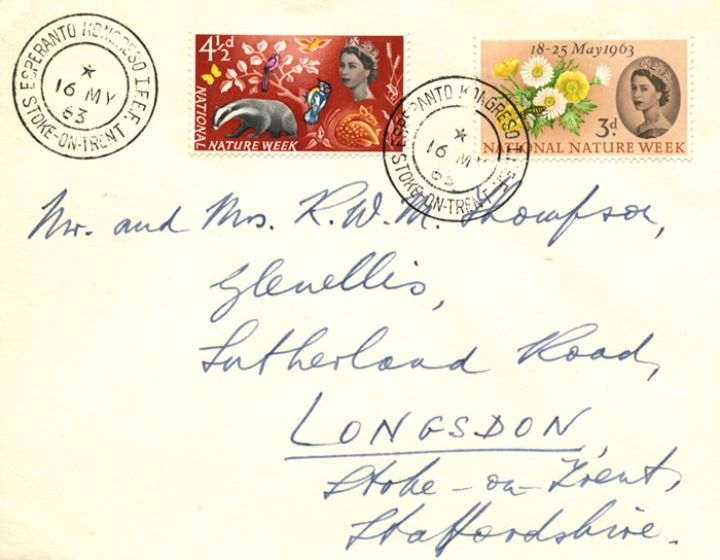 ESPERANTO KONGRESO I.F.E.F.
*
16 MY
63
STOKE-ON-TRENT
4½d
NATIONAL
NATURE WEEK
18-25 May 1963
3d
NATIONAL NATURE WEEK
ESPERANTO KONGRESO I.F.E.F.
*
16 MY
63
STOKE-ON-TRENT
Mr. and Mrs. R.W.M. Thompson,
Glenellis,
Sutherland Road,
LONGSDON,
Stoke-on-Trent,
Staffordshire.